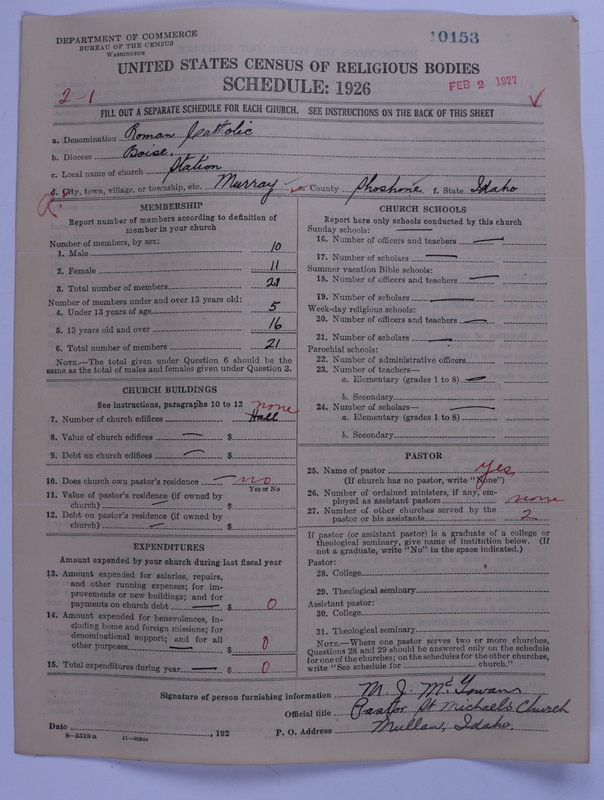 DEPARTMENT OF COMMERCE
BUREAU OF THE CENSUS
WASHINGTON
10153
UNITED STATES CENSUS OF RELIGIOUS BODIES
SCHEDULE: 1926
FEB 2 1927
2-1
FILL OUT A SEPARATE SCHEDULE FOR EACH CHURCH. SEE INSTRUCTIONS ON THE BACK OF THIS SHEET
a. Denomination Roman Catholic
b. Diocese Boise.
c. Local name of church Station
d. City, town, village, or township, etc. Murray e. County Shoshone f. State Idaho
R.
MEMBERSHIP
Report number of members according to definition of
member in your church
Number of members, by sex:
1. Male 10
2. Female 11
3. Total number of members 21
Number of members under and over 13 years old:
4. Under 13 years of age 5
5. 13 years old and over 16
6. Total number of members 21
NOTE.—The total given under Question 6 should be the
same as the total of males and females given under Question 3.
CHURCH BUILDINGS
See instructions, paragraphs 10 to 12 none
7. Number of church edifices Hall
8. Value of church edifices — $
9. Debt on church edifices — $
10. Does church own pastor's residence — no
Yes or No
11. Value of pastor's residence (if owned by
church) — $
12. Debt on pastor's residence (if owned by
church) — $
EXPENDITURES
Amount expended by your church during last fiscal year
13. Amount expended for salaries, repairs,
and other running expenses; for im-
provements or new buildings; and for
payments on church debt — $ 0
14. Amount expended for benevolences, in-
cluding home and foreign missions; for
denominational support; and for all
other purposes — $ 0
15. Total expenditures during year — $ 0
CHURCH SCHOOLS
Report here only schools conducted by this church
Sunday schools: —
16. Number of officers and teachers —
17. Number of scholars —
Summer vacation Bible schools:
18. Number of officers and teachers —
19. Number of scholars —
Week-day religious schools:
20. Number of officers and teachers —
21. Number of scholars —
Parochial schools:
22. Number of administrative officers
23. Number of teachers—
a. Elementary (grades 1 to 8) —
b. Secondary
24. Number of scholars— —
a. Elementary (grades 1 to 8)
b. Secondary
PASTOR
25. Name of pastor Yes
(If church has no pastor, write "None")
26. Number of ordained ministers, if any, em-
ployed as assistant pastors none
27. Number of other churches served by the
pastor or his assistants 2
If pastor (or assistant pastor) is a graduate of a college or
theological seminary, give name of institution below. (If
not a graduate, write "No" in the space indicated.)
Pastor:
28. College
29. Theological seminary
Assistant pastor:
30. College
31. Theological seminary
NOTE.—Where one pastor serves two or more churches,
Questions 28 and 29 should be answered only on the schedule
for one of the churches; on the schedules for the other churches,
write "See schedule for church."
Signature of person furnishing information M. J. McGowan
Official title Pastor St Michael's Church
Date , 192 P. O. Address Mullan, Idaho.
8-5318 a